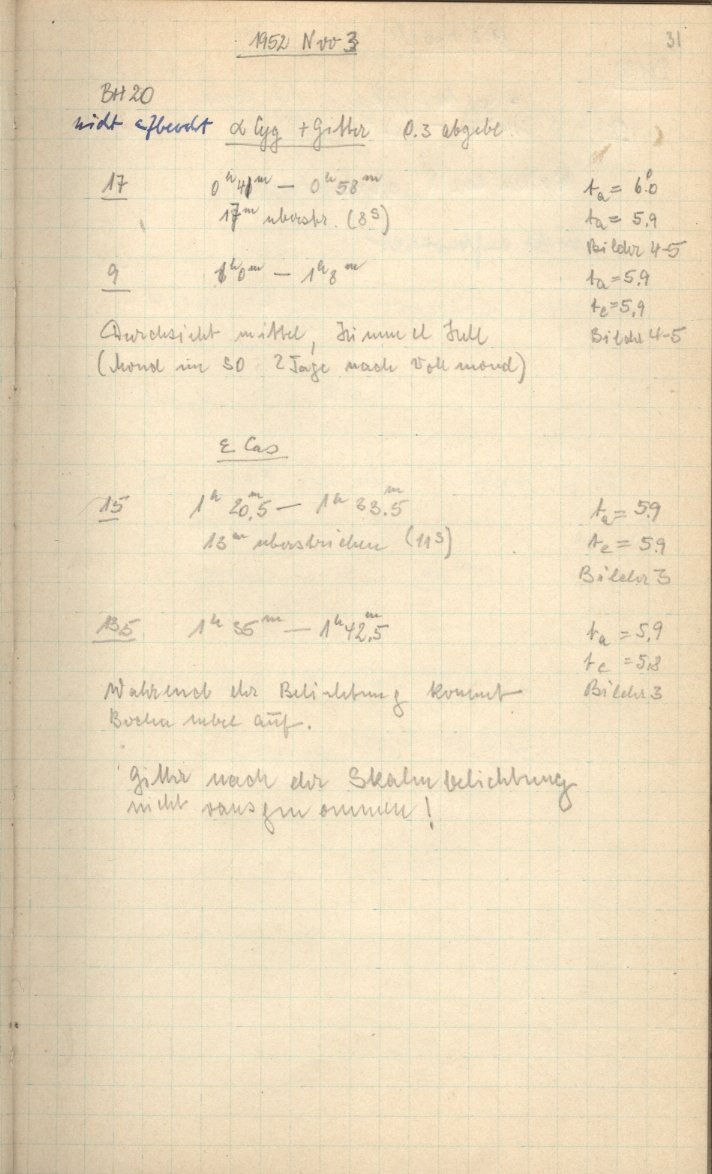 1952 Nov 3
31
BH 20
nicht α Cyg + Gitter 0.3 abgebl.
17 0ʰ 41ᵐ — 0ʰ 58ᵐ tₐ = 6.0
17ᵐ überstr. (8ˢ) tₐ = 5.9
Bilder 4-5
9 1ʰ0ᵐ — 1ʰ8ᵐ tₐ = 5.9
tₑ = 5.9
Durchsicht mittel, Himmel hell Bilder 4-5
(Mond im SO 2 Tage nach Vollmond)
ε Cas
15 1ʰ 20,5ᵐ — 1ʰ 33.5ᵐ tₐ = 5.9
13ᵐ überstrichen (11ˢ) tₑ = 5.9
Bilder 3
13.5 1ʰ 35ᵐ — 1ʰ 42,5ᵐ tₐ = 5,9
tₑ = 5,8
Während der Belichtung kommt Bilder 3
Bodennebel auf.
Gitter nach der Skalenbelichtung
nicht rausgenommen!